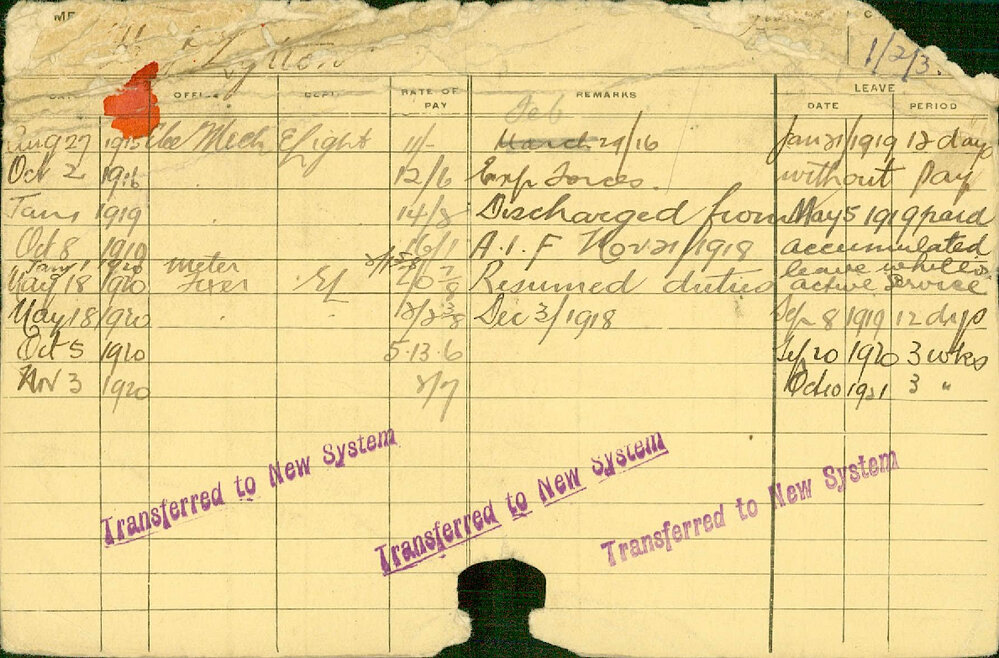 1/2/3.
OFFICE DEPT. RATE OF PAY REMARKS LEAVE
DATE PERIOD
Feb
Aug 27 1915 Mech E Light 11/- March 29/16 Jan 21/1919 12 days
Oct 2 1916 12/6 Exp Forces. without Pay
Jan 1 1919 14/8 Discharged from May 5 1919 paid
Oct 8 1919 16/1 A.I.F Nov 21/1918 accumulated
Jan 1 1920 Meter leave whilst
May 18 1920 Fixer El Resumed duties active service
May 18/1920 Dec 3/1918 Sep 8 1919 12 dys
Oct 5 1920 5.13.6 Sep 20 1920 3 wks
Nov 3 1920 2/7 Oct 10 1921 3 "
Transferred to New System
Transferred to New System
Transferred to New System